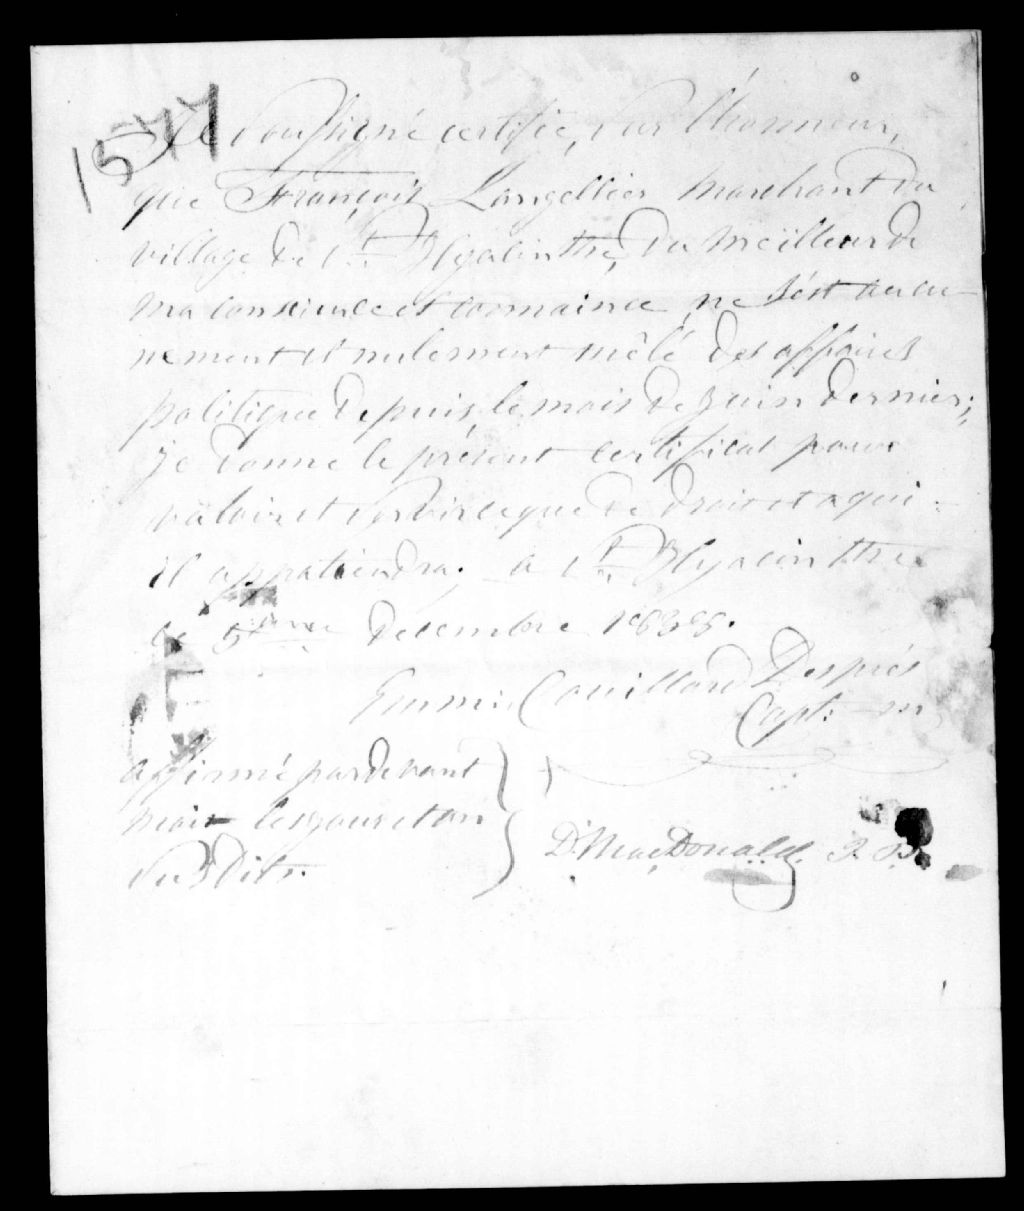 1577
Je Sousigné certifie, sur l'honneur,
que François Langellier Marchant du
village de St. Hyacinthe, du meilleur de
ma consience et connaince ne s'est aucu-
nement et nulement mêlé des affaires
politique depuis le mois de Juin dernier;
je donne le présent certificat pour
valoir et servir ce que de droit et a qui
il appatiendra; a St. Hyacinthe
le 5ème Decembre 1838.
Couillard Després
Capt. m
affirmé pardevant
moi les jour et an
Susdits.
D. MacDonald. J. P.